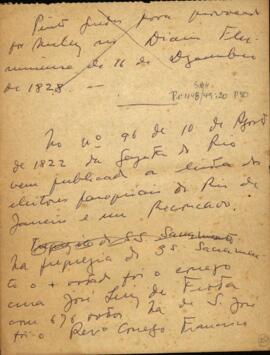 Pinto Guedes fora processado
por Muller no Diario Flu-
minense de 16 de Dezembro
de 1828 —
P 30
No nº 96 de 10 de Agosto
de 1822 da Gazeta do Rio
vem publicada a lista dos
eleitores parochiaes do Rio de
Janeiro e seu Reconcavo.
Freguezia do SS. Sacramento
Na freguezia do SS. Sacramen
to o + votado foi o conego
cura José Luiz de
com 676 votos. Na de S. José
foi o Revo Conego Francisco